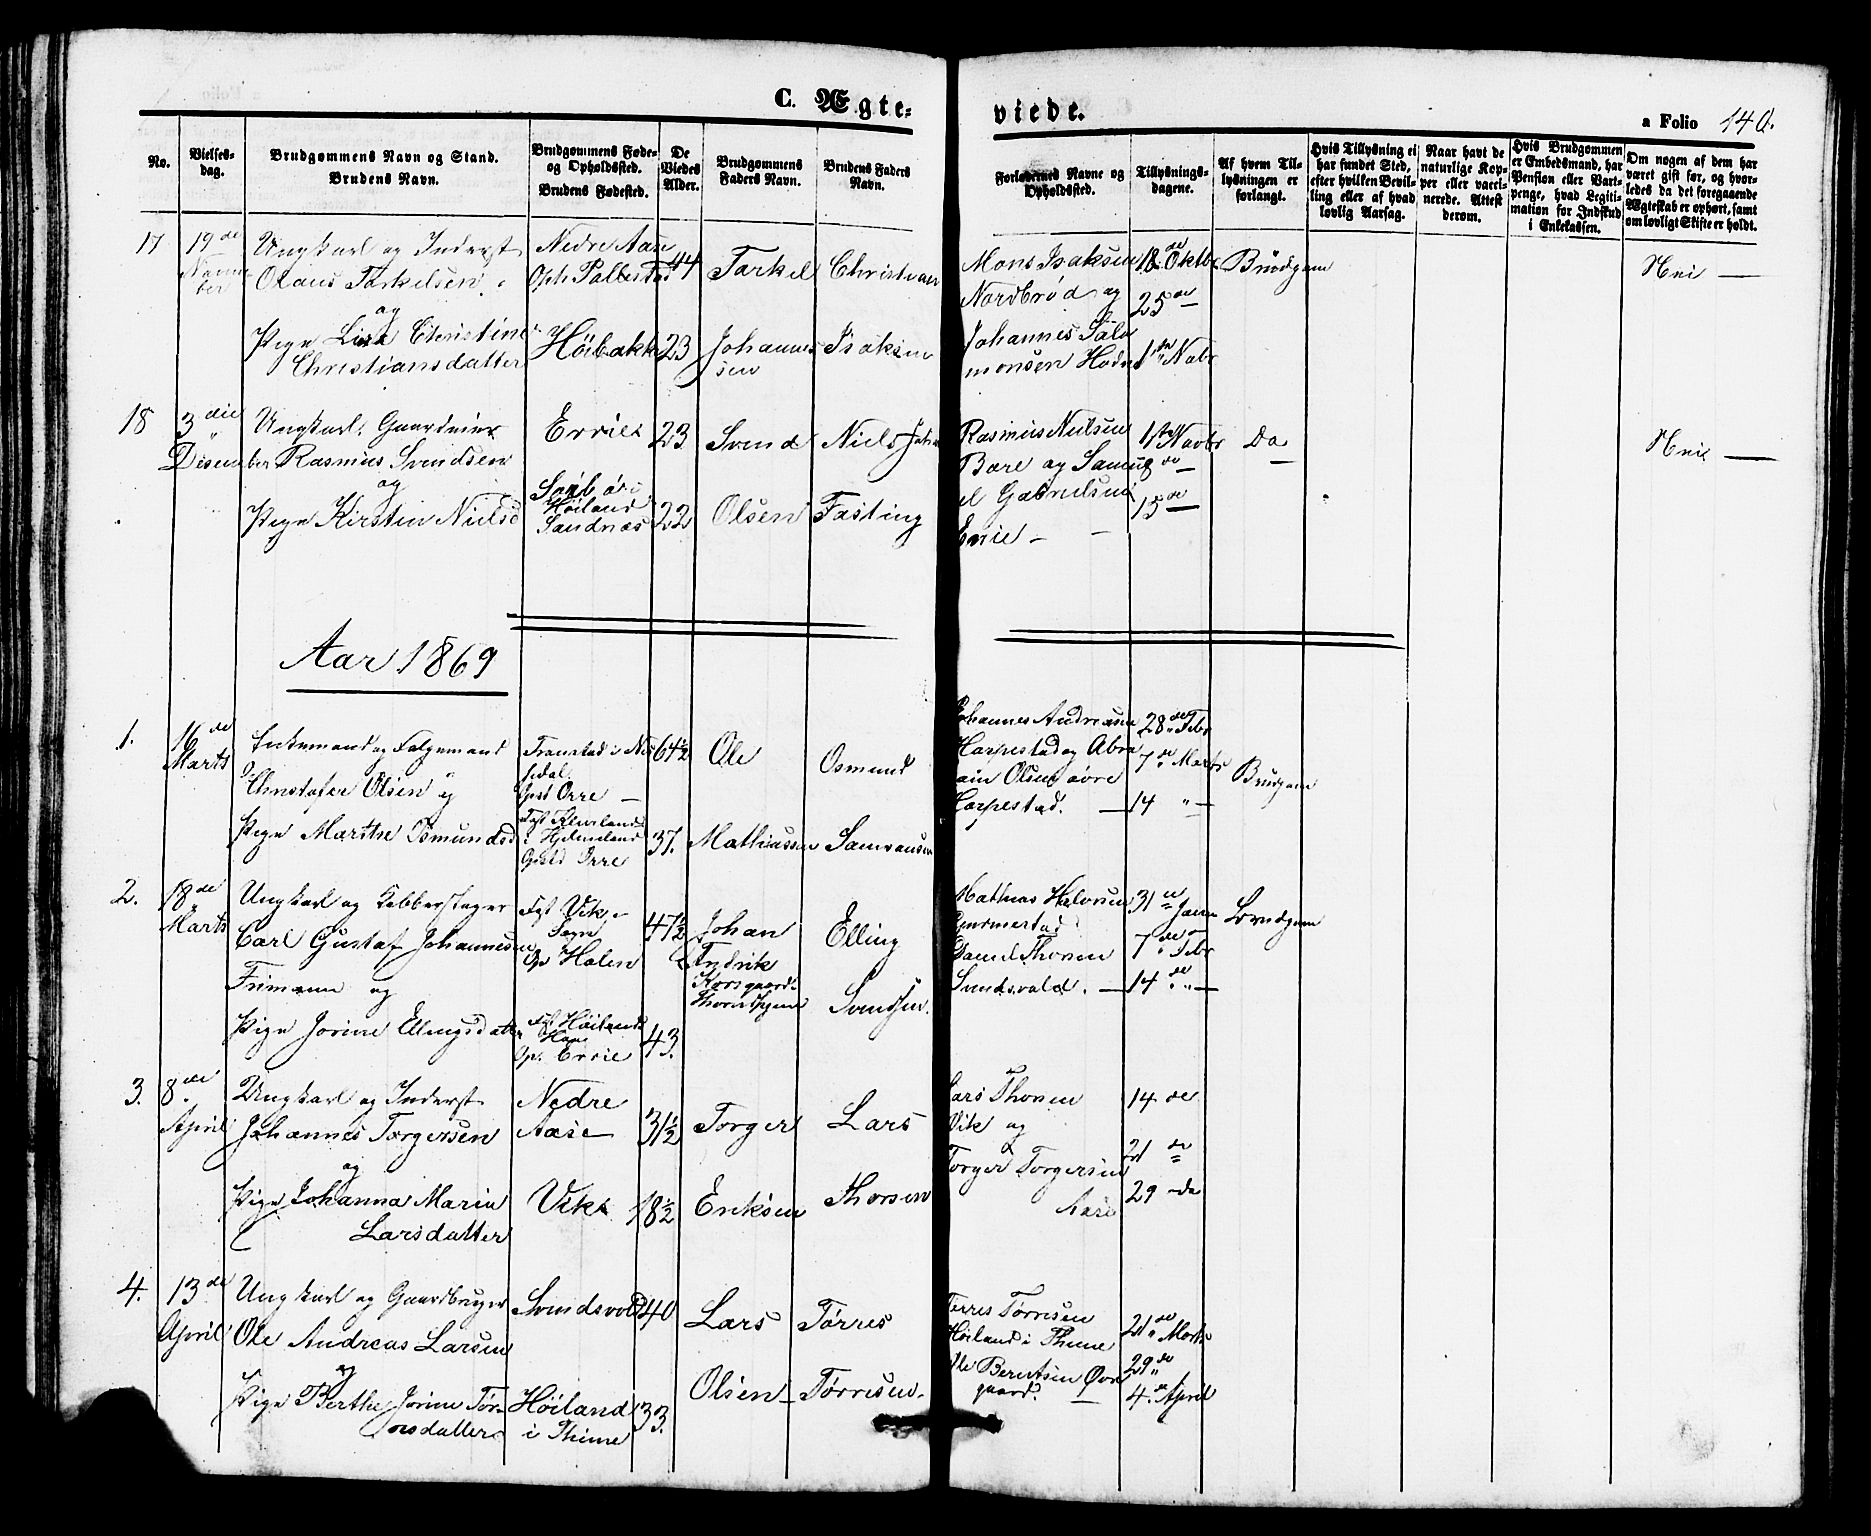 C. Ægte- viede.
a Folio 140.
No.
Vielses-
dag.
Brudgommens Navn og Stand.
Brudens Navn.
Brudgommens Føde-
og Opholdssted.
Brudens Fødested.
De
Viedes
Alder.
Brudgommens
Faders Navn.
Brudens Faders
Navn.
Forlovernes Navne og
Opholdssted.
Tillysnings-
dagene.
Af hvem Til-
lysningen er
forlangt.
Hvis Tillysning ei
har fundet Sted,
efter hvilken Bevil-
ling eller af hvad
lovlig Aarsag.
Naar havt de
naturlige Kop-
per eller vacci-
nerede. Attest
derom.
Hvis Brudgommen
er Embedsmand, har
Pension eller Vart-
penge, hvad Legiti-
mation for Indskud
i Enkekassen.
Om nogen af dem har
været gift før, og hvor-
ledes da det foregaaende
Ægteskab er ophørt, samt
om lovligt Skifte er holdt.
17
19de
Novem
ber
Ungkarl og Inderst
Olaus Tarkelsen
og
Pige Lisa Christine
Christiansdatter
Nedre Aase
Oph Pollestad
Höibakk
44
23
Tarkel
Johannes
sen
Christian
Isaksen
Mons Isaksen
Nordbrød og
Johannes Salo
monsen Hodne
18de Oktbr
25de
1ste Nobr
Brudgom
Nei —
18
3die
Disember
Ungkarl. Gaardeier
Rasmus Svendsen
og
Pige Kirsten Nielsd
Errie
Höiland
Sandnæs
23
22
Svend
Olsen
Niels John
Fasting
Rasmus Nielsen
Bore og Samu
el Gabrielsen
Erie —
1ste Novbr
8de —
15de —
Do
—
Nei —
Aar 1869
1.
16de
Marts
Enkemand og Folgemand
Christofer Olsen og
Pige Marthe Osmundsd
Opst Orre —
i Hjelmeland
Opst Orre
64½
37.
Ole
Mathiassen
Osmund
Samsonsen
Johannes Andreasen
Harpestad og Abra
am Olsen øvre
Harpestad. —
28de Febr
7de Marts
14 " —
Brudgom
2.
18de
Marts
Ungkarl og Kobberslager
Carl Gustaf Johannesen
Frimann og
Pige Jorine Ellingsdatter
Fgt Vik i
Sogn
Op Holen
Fgt Höilands
Op. Errie
47½
43.
Johan
Fredrik
Korsgaard
Elling
Svendsen.
Mathias Halvorsen
Daniel Thorsen
Sundsvald. —
31te Janr
7de Febr
14de " —
Brudgom
3.
8de
April
Ungkarl og Inderst
Johannes Torgersen
og
Pige Johanna Maria
Larsdatter
Nedre
Aase
Vik
31½
18½
Torger
Eriksen
Lars
Thorsen
Lars Thorsen
Vik og
Torger Torgersen
Aase
14 de
21 de
29 de
4.
13de
April
Ungkarl og Gaardbruger
Ole Andreas Larsen
og
Pige Berthe Jorine Tør-
resdatter
Svindsvold
Höiland
i Thime
40
33.
Lars
Olsen —
Tørres
Tørresen.
Tørres Tørresen
Höiland i Thime
Ole Berentsen Øvr
gaard. —
21de Marts
29de "
4de April